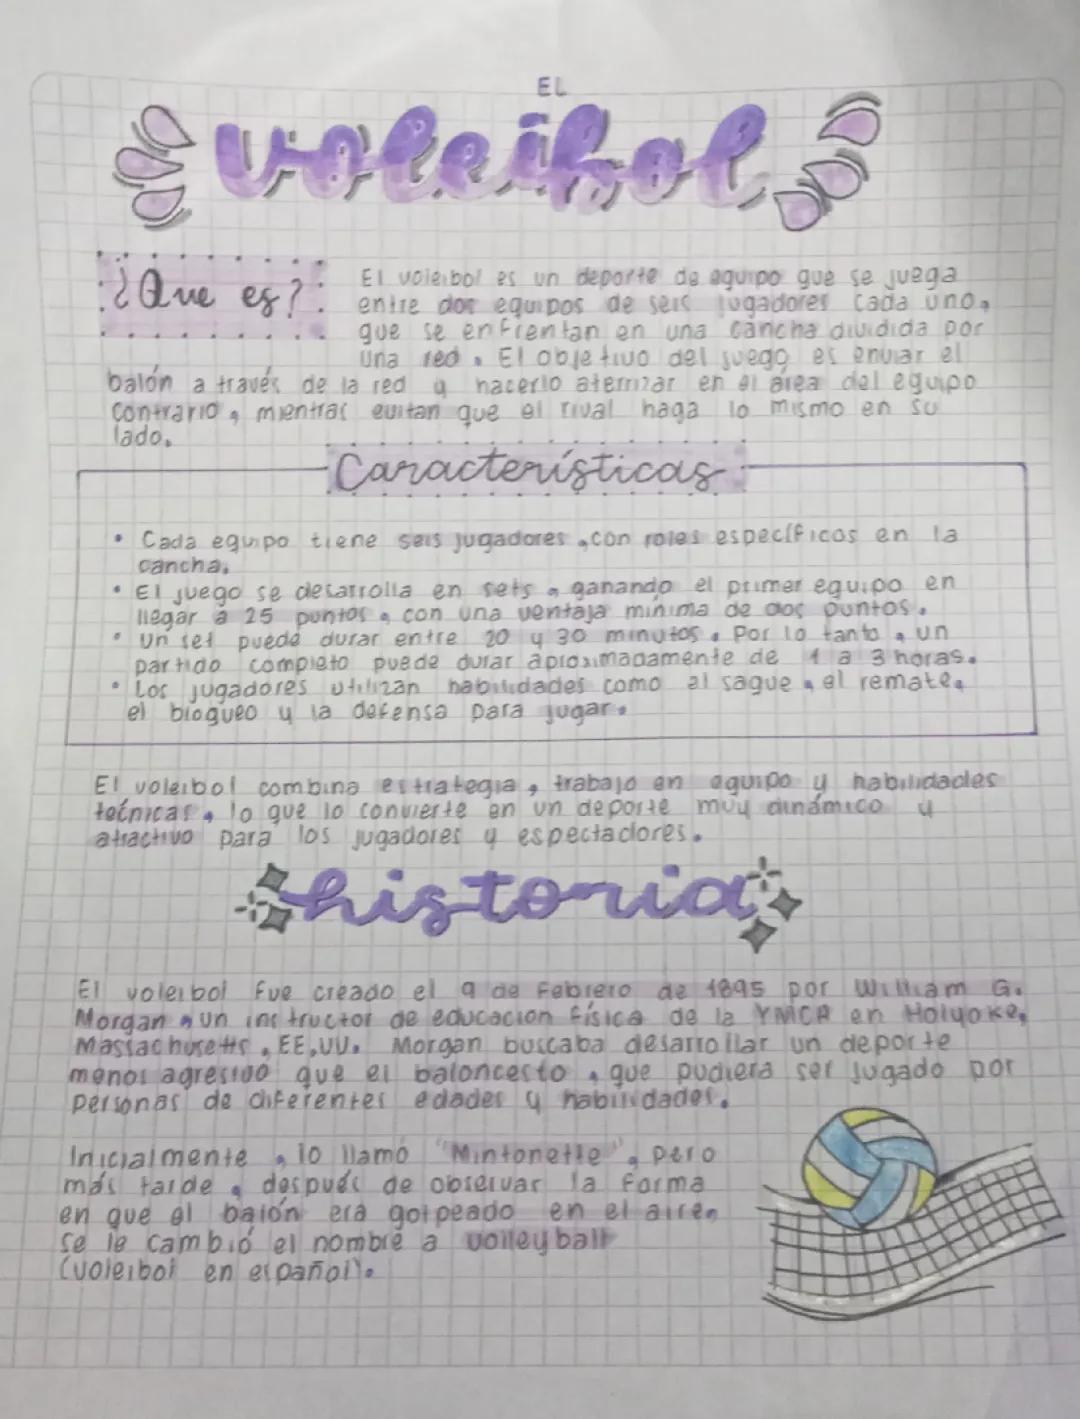 EL
voleibol
¿Que es?
El voleibol es un deporte de equipo que se juega
entre dos equipos de seis jugadores cada uno,
que se enfrentan en una cancha dividida por
una red. El objetivo del juego es enviar el
balón a través de la red y hacerlo aterrizar en el área del equipo
contrario, mientras evitan que el rival haga lo mismo en su
lado.
Características
• Cada equipo tiene seis jugadores, con roles específicos en la
cancha.
• El juego se desarrolla en sets, ganando el primer equipo en
llegar a 25 puntos, con una ventaja mínima de dos puntos.
• Un set puede durar entre 20 y 30 minutos. Por lo tanto, un
partido completo puede durar aproximadamente de 1 a 3 horas.
• Los jugadores utilizan habilidades como el saque, el remate,
el bloqueo y la defensa para jugar.
El voleibol combina estrategia, trabajo en equipo y habilidades
técnicas, lo que lo convierte en un deporte muy dinámico y
atractivo para los jugadores y espectadores.
historia
El voleibol fue creado el 9 de Febrero de 1895 por William G.
Morgan, un instructor de educación física de la YMCA en Holyoke,
Massachusetts, EE.UU. Morgan buscaba desarrollar un deporte
menos agresivo que el baloncesto, que pudiera ser jugado por
personas de diferentes edades y habilidades.
Inicialmente, lo llamó "Mintonette", pero
más tarde, después de observar la forma
en que el balón era golpeado en el aire,
se le cambió el nombre a volleyball
(voleibol en español).